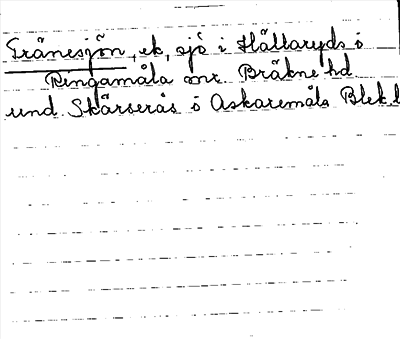 Tränesjön, ek, sjö i Hällaryds o
Ringamåla snr Bräkne hd
und. Skärserås o Askaremåls Blek. l